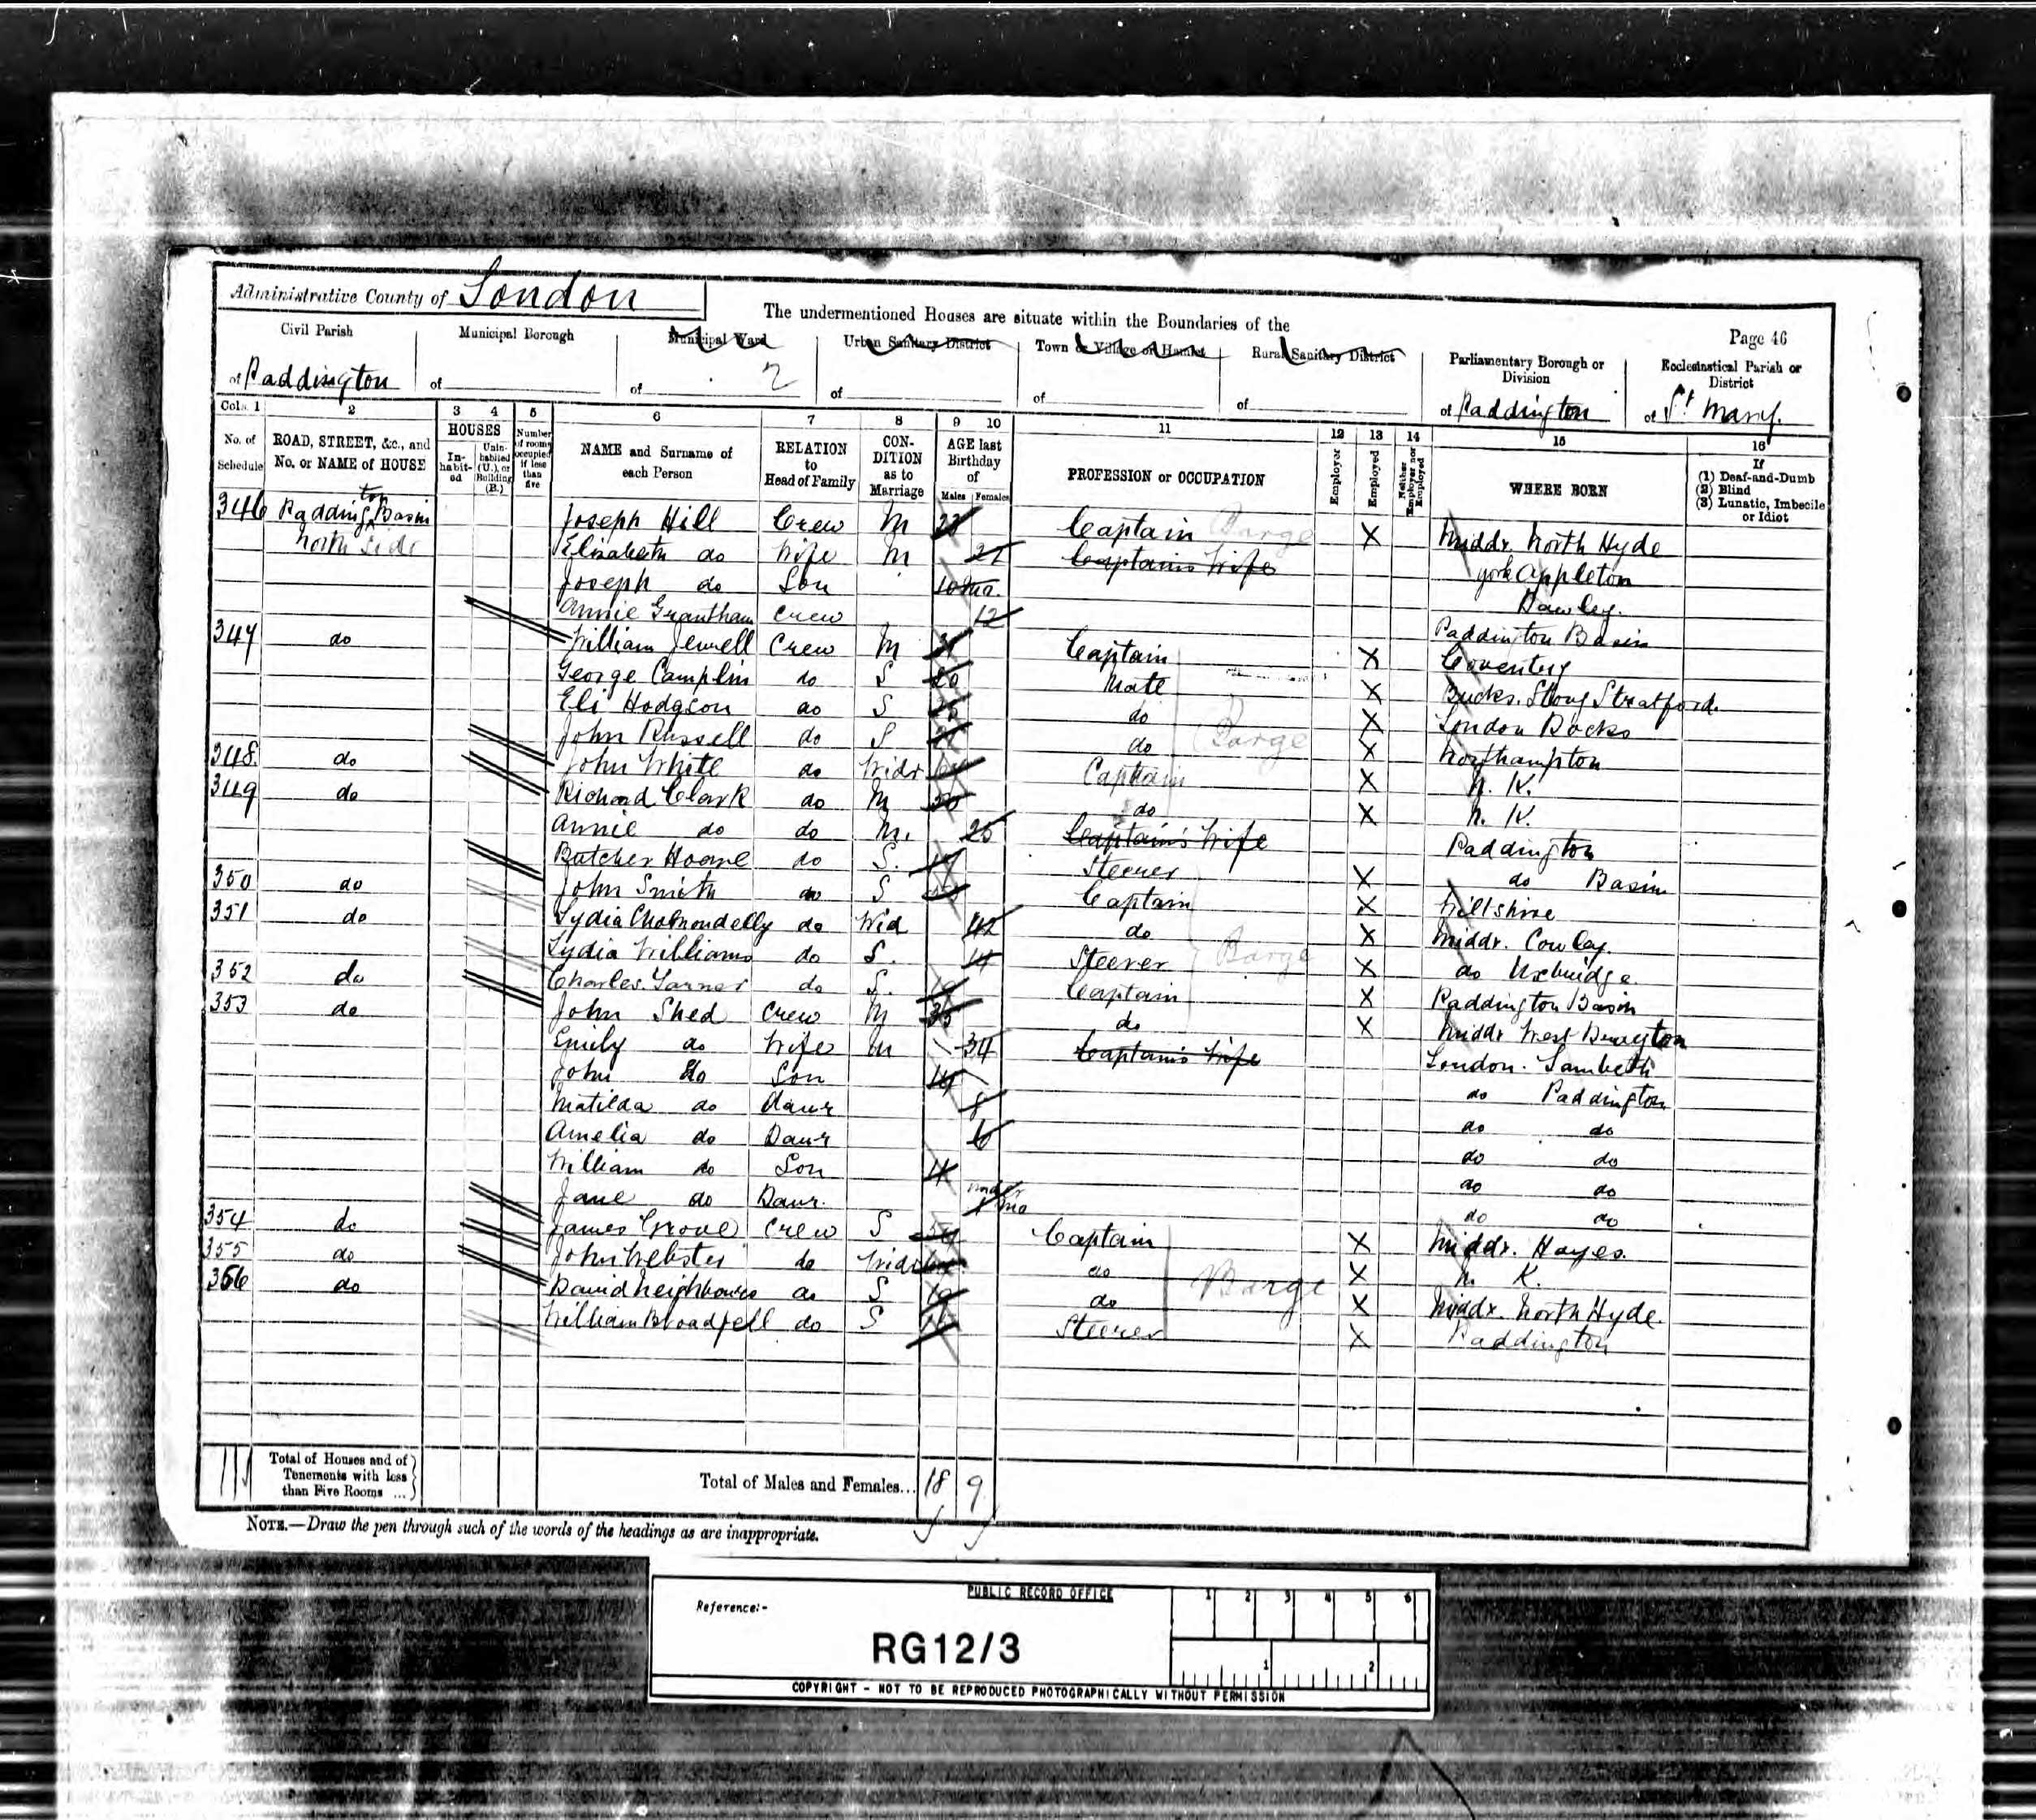 Administrative County of London
The undermentioned Houses are situate within the Boundaries of the
Page 46
Civil Parish Municipal Borough Municipal Ward Urban Sanitary District Town or Village or Hamlet Rural Sanitary District Parliamentary Borough or Division Ecclesiastical Parish or District
of Paddington of of 2 of of of of Paddington of St Mary.
Cols. 1 2 3 4 5 6 7 8 9 10 11 12 13 14 15 16
No. of Schedule ROAD, STREET, &c., and No. or NAME of HOUSE HOUSES Inhabited Uninhabited (U.), or Building (B.) Number of rooms occupied if less than five NAME and Surname of each Person RELATION to Head of Family CONDITION as to Marriage AGE last Birthday of Males Females PROFESSION or OCCUPATION Employer Employed Neither Employer nor Employed WHERE BORN If (1) Deaf-and-Dumb (2) Blind (3) Lunatic, Imbecile or Idiot
346 Paddington Basin Joseph Hill Crew M Captain Barge X Middx. North Hyde
North Side Elizabeth do Wife M 21 Captain's Wife York Appleton
Joseph do Son 10 mo. Dawley.
Annie Grantham Crew 12 Paddington Basin
347 do William Jewell Crew M Captain X Coventry
George Camplin do S 20 Mate X Bucks. Stony Stratford.
Eli Hodgson do S do X London Docks
John Russell do S do Barge X Northampton
348. do John White do Widr Captain X N. K.
349 do Richard Clark do M do X N. K.
Annie do do M. Captain's Wife Paddington
Butcher Hoane do S. Steerer X do Basin
350 do John Smith do S Captain X Wiltshire
351 do Lydia Cholmondelly do Wid 42 do X Middx. Cowley.
Lydia Williams do S. 14 Steerer Barge X do Uxbridge.
352 do Charles Garner do S. Captain X Paddington Basin
353 do John Shed Crew M 35 do X Middx West Drayton
Emily do Wife M 34 Captain's Wife London. Lambeth
John do Son do Paddington
Matilda do Daur 8 do do
Amelia do Daur 6 do do
William do Son 4 do do
Jane do Daur. under 1 mo do do
354 do James Grove Crew S Captain X Middx. Hayes.
355 do John Webster do Widr do X N. K.
356 do David Neighbours do S do Barge X Middx. North Hyde.
William Broadfell do S Steerer X Paddington
Total of Houses and of Tenements with less than Five Rooms ... Total of Males and Females... 18 9
NOTE.—Draw the pen through such of the words of the headings as are inappropriate.
PUBLIC RECORD OFFICE 1 2 3 4 5 6
Reference:-
RG12/3
1 2
COPYRIGHT - NOT TO BE REPRODUCED PHOTOGRAPHICALLY WITHOUT PERMISSION